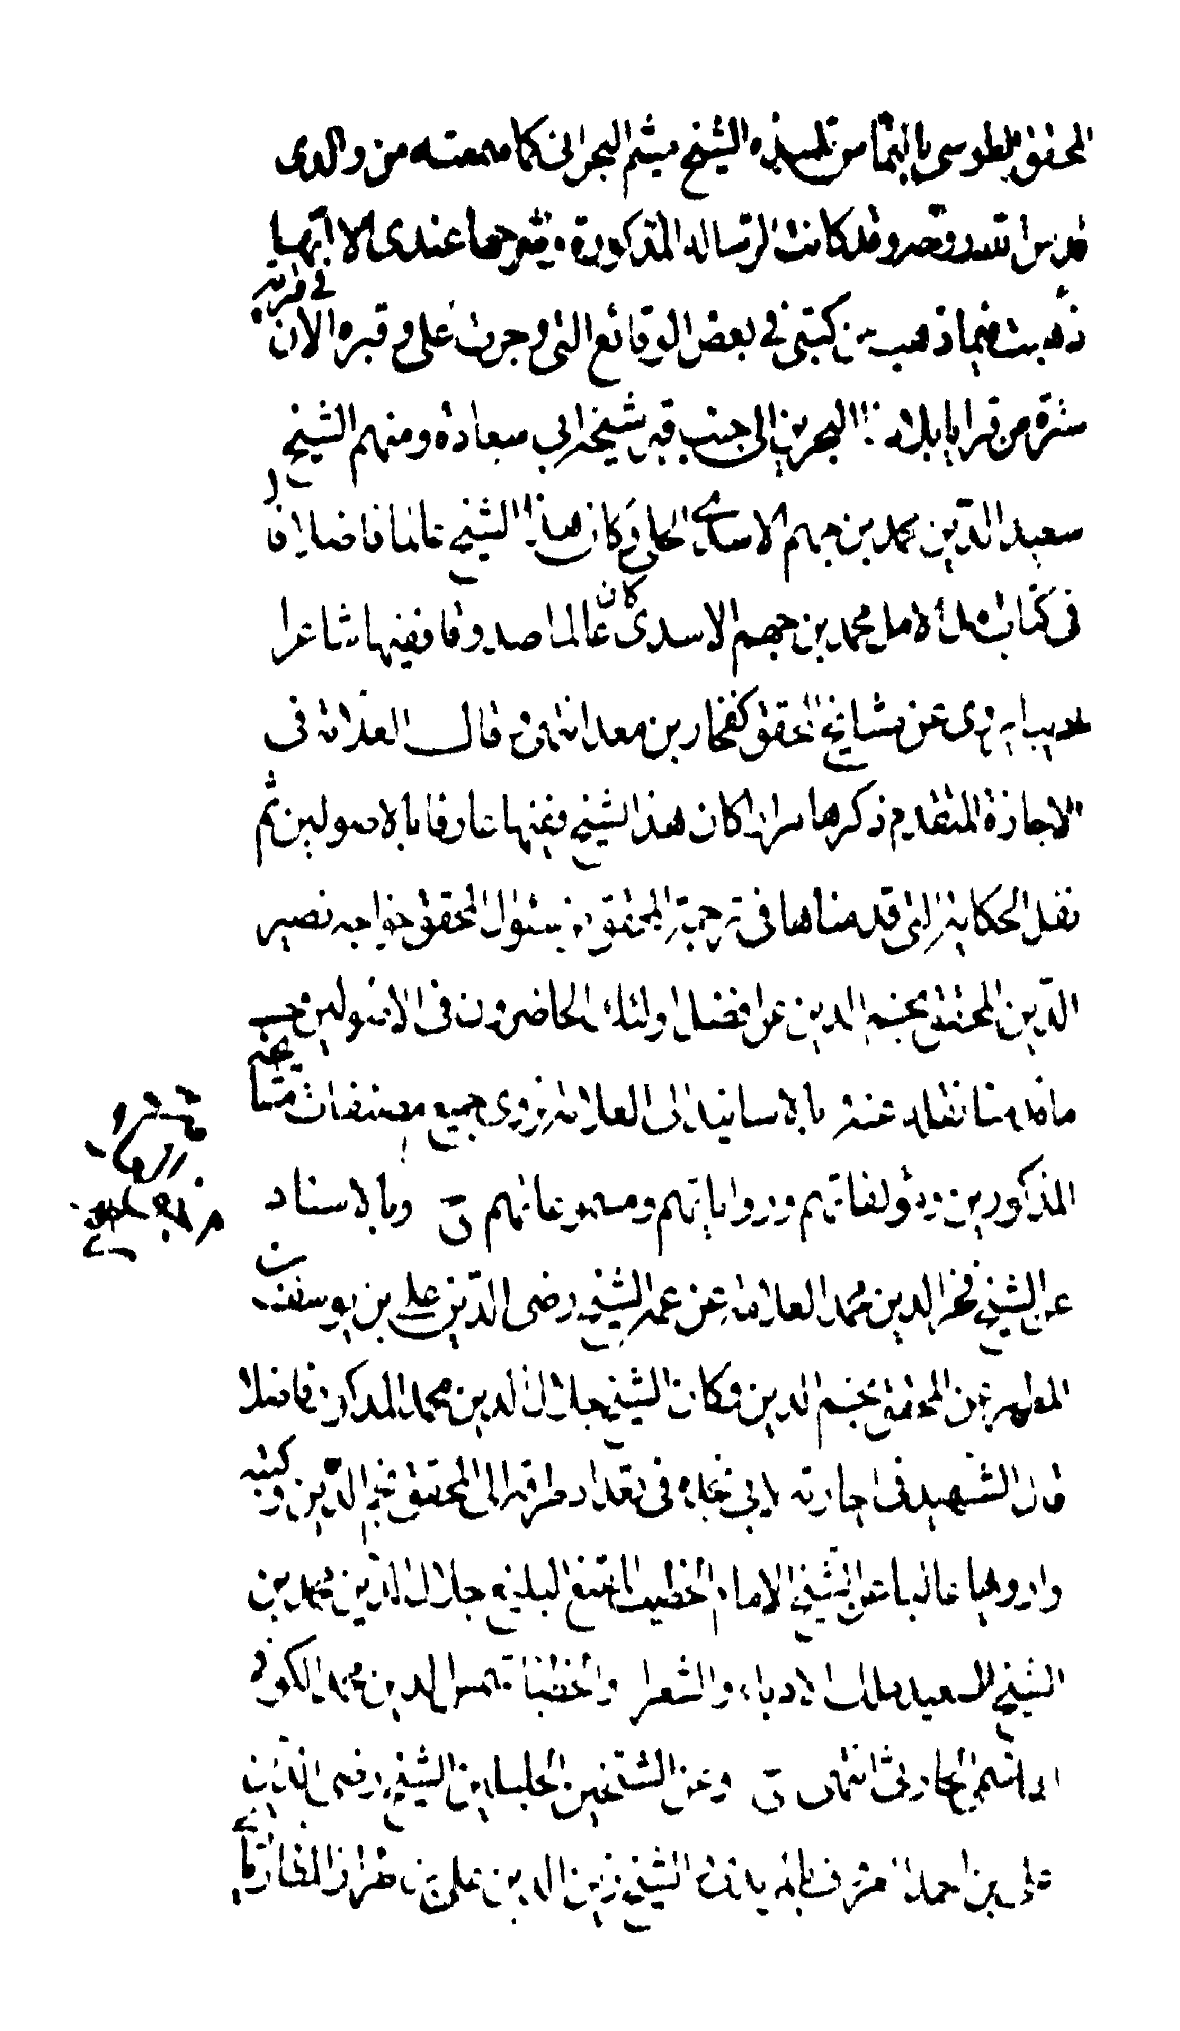 المحقق الطوسي بالتماس تلميذه الشيخ ميثم البحراني كما سمعته من والدي
قدس الله روحه وقد كانت الرسالة المذكورة وشرحها عندي الا انها
ذهبت فيما ذهب من كتبي في بعض الوقائع التي جرت علي وقبره الآن في قرية
سترة من قرايا بلاد البحرين الى جنب قبر شيخه ابي سعادة ومنهم الشيخ
سعيد الدين محمد بن جهم الاسدي الحلي وكان هذا الشيخ عالما فاضلا قال
في كتاب امل الامل محمد بن جهم الاسدي كان عالما صدوقا فقيها شاعرا
اديبا يروي عن مشايخ المحقق كفخار بن معد انتهى وقال العلامة في
الاجازة المتقدم ذكرها مرارا كان هذا الشيخ فقيها عارفا بالاصولين ثم
نقل الحكاية التي قدمناها في ترجمة المحقق من سئوال المحقق خواجه نصير
الدين المحقق نجم الدين عن افضل اولئك الحاضرون في الاصولين حسب
ما قدمنا نقله عنه بالاسانيد الى العلامة نروي جميع مصنفات مشايخه
المذكورين ومؤلفاتهم ورواياتهم ومسموعاتهم ق وبالاسناد
عن الشيخ فخر الدين محمد العلامة عن عمه الشيخ رضي الدين علي بن يوسف بن
المطهر عن المحقق نجم الدين وكان الشيخ جلال الدين محمد المذكور فاضلا
قال الشهيد في اجازته لابن نجده في تعداد طرقه الى المحقق نجم الدين وكتبه
وارويها عاليا عن الشيخ الامام الخطيب المصقع البليغ جلال الدين محمد بن
الشيخ السعيد ملك الادباء والشعراء والخطباء شمس الدين محمد الكوفي
الهاشمي الحارثي انتهى ق وعن الشيخين الجليلين الشيخ رضي الدين
علي بن احمد المزيدي والشيخ زين الدين علي بن طراز المطارابادي